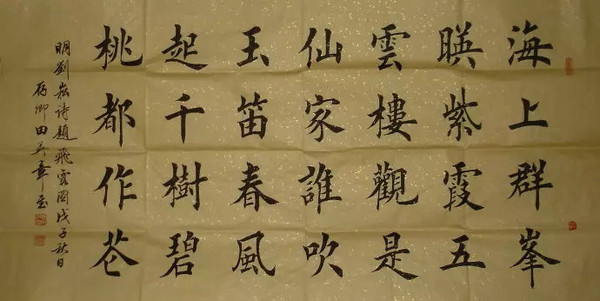 海上群峯
暎紫霞五
雲樓觀是
仙家誰吹
玉笛春風
起千樹碧
桃都作花
明劉崧诗題飛霞図戊子秋日
存卿田英章書